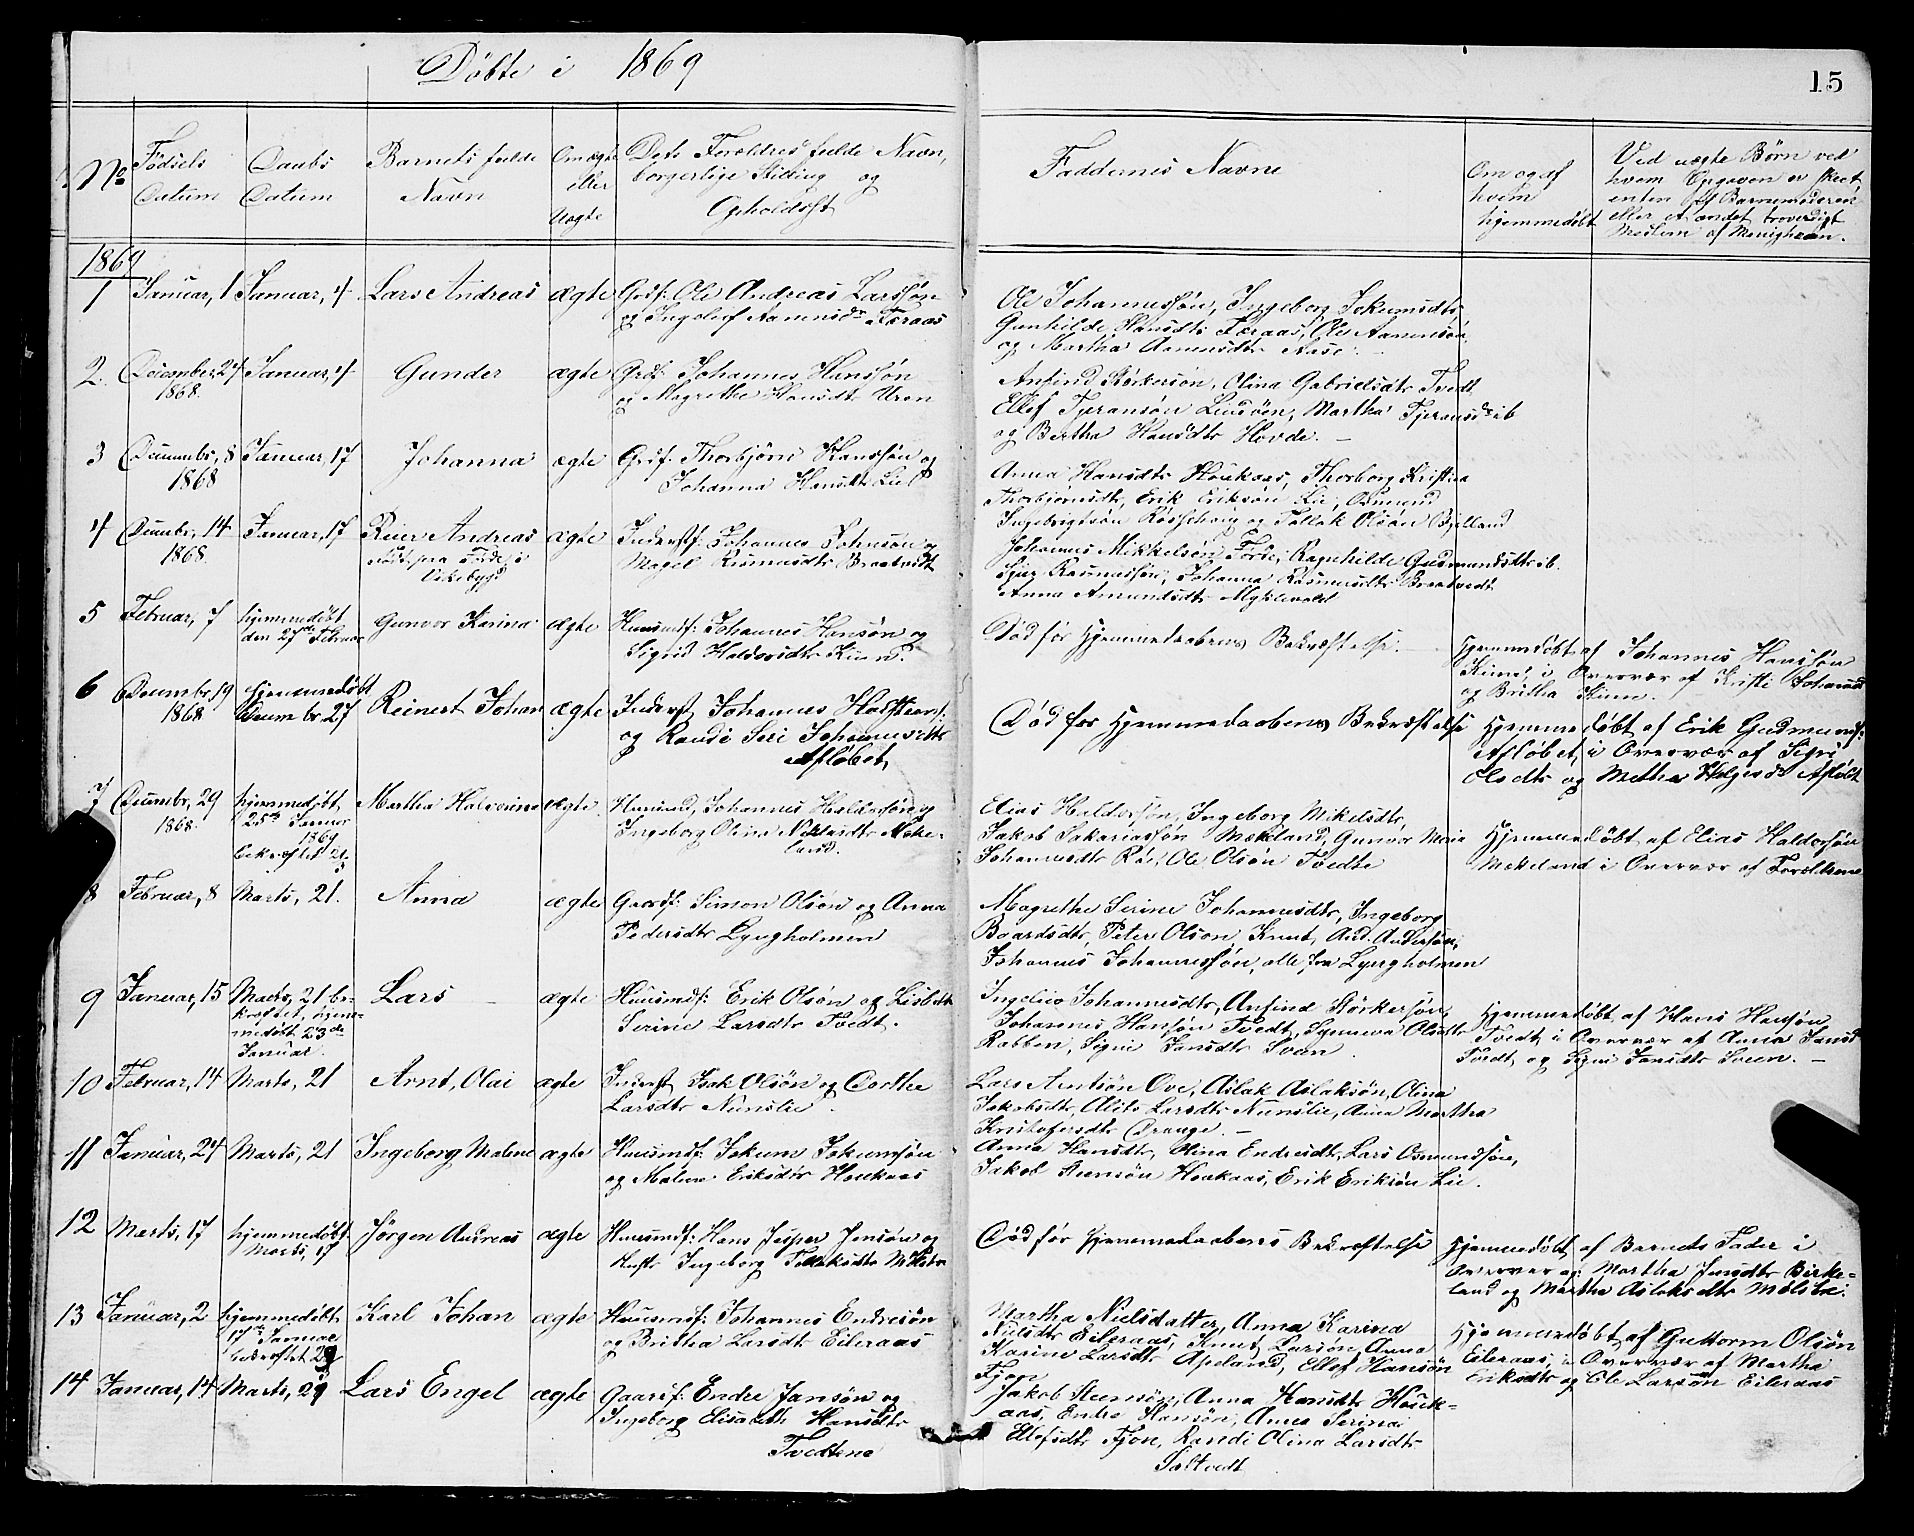 Döbte i 1869
15
No
Födsels Datum
Daabs Datum
Barnets fulde Navn
Om ægte eller Uægte
Dets Forældres fulde Navn, borgerlige Stilling og Opholdsst
Faddernes Navne
Om og af hvem hjemmedöbt
Ved uægte Börn ved hvem Opgaven er skeet enten af Barnemoderen eller et andet troverdigt Medlem af Menigheden.
1869
1 Januar, 1 Januar, 4 Lars Andreas ægte Grdf: Ole Andreas Larssön
og Ingeleif Aamunsdr Færaas
Ole Johannessön, Ingeborg Jokumsdtr,
Gunhilde Hansdtr Færaas, Ole Aamunsön
og Martha Aamunsdtr Aase. —
2. December, 27 1868. Januar, 4 Gunder ægte Grdf: Johannes Hanssön
og Magrethe Hansdtr Uren
Anfind Störkersön, Olina Gabrielsdtr Tvedt
Ellef Tjeransön Lindöen, Martha Tjeransdtr ib
og Bertha Hansdtr Hovde. —
3 Decembr, 8 1868 Januar, 17 Johanna ægte Grdf: Thorbjörn Hanssön og
Johanna Hansdtr Lie
Anna Hansdtr Houkaas, Thorborg Kristina
Thorbjörnsdtr, Erik Eriksön Lie, Osmund
Ingebrigtsön Rössehaug og Tollak Olsön Bjelland
4 Decembr, 14 1868 Januar, 17 Reier Andreas
födt paa Förde i
Vikebygd
ægte Inderstf: Johannes Johnsön og
Magel Rasmusdtr Braatvedt
Johannes Mikkelsen Förde, Ragnhilde Gudmundsdtr ib.
Sjur Rasmussön, Johanna Rasmusdtr Braatvedt
Anna Amundsdtr Myklevold
5 Februar, 7 hjemmedöbt
den 27de Februar Gunvor Karina ægte Huusmdf: Johannes Hansön og
Sigrid Haldorsdtr Kinn.
Död för Hjemmedaabens Bekræftelse. —
Hjemmedöbt af Johannes Hanssön
Kinn, i Overvær af Kristi Johannsd
og Britha Kinn.
6 Decembr, 19 1868 hjemmedöbt
Decembr 27 Reinert Johan ægte Inderst Johannes
og Randi Seri Johannesdtr
Aflöbet,
Död for Hjemmedaabens Bekræftelse
Hjemmedöbt af Erik Gudmunds:
Aflöbet, i Overvær af Siri
Olsdtr og Metha Helgesdr Aflöbt
7 Decembr, 29 1868. hjemmedöbt
25de Januar
1869
bekræftet 21/3 Martha Halvorine ægte. Huusmd, Johannes Haldorsön og
Ingeborg Olina Niklasdtr Mæke-
land.
Elias Haldorsön, Ingeborg Mikelsdtr,
Jakob Sakariassön Mækeland, Gunvor Maria
Johannesdtr Röe, Ole Olsön Tvedte
Hjemmedöbt af Elias Haldorsön
Mækeland i Overvær af Forældrene
8 Februar, 8 Marts, 21. Anna ægte Gaardf: Simon Olsön og Anna
Pedersdtr Lyngholmen
Magrethe Serine Johannesdtr, Ingeborg
Baardsdtr, Peter Olson, Knut, And. Andersön,
Johannes Johannessön, alle fra Lyngholmen
9 Januar, 15 Marts, 21 be-
kræftet, hjem-
medöbt 23de
Januar. Lars — ægte Huusmdf: Erik Olsön og Lisbeth
Serine Larsdtr Tvedt.
Johannesdtr, Anfind Störkersön,
Johannes Hansön Tvedt, Synneva Olsdtr
Rabben, Signi Jansdtr Sveen.
Hjemmedöbt af Hans Hansön
Tvedt, i Overvær af Anna Jansd
Tvedt og Signi Jansdtr Sveen. —
10 Februar, 14 Marts, 21 Arnt, Olai ægte Inderst Isak Olsön og Dorthe
Larsdtr Nunslie.
Lars Arntsön Ove, Aslak Aslaksön, Olina
Jakobsdtr, Alits Larsdtr Nunslie, Anna Martha
Kristofersdtr Drange. —
11 Januar, 24 Marts, 21 Ingeborg Malene ægte Huusmdf: Jokum Jokumsön
og Malene Eriksdtr Houkaas
Anna Hansdtr, Olina Endresdtr, Lars Osmundsön,
Jakob Steensön Houkaas, Erik Eriksön Lie.
12 Marts, 17 hjemmedöbt
Marts, 17 Jörgen Andreas ægte Huusmdf: Hans Jesper Jensön og
Hustr Ingeborg Tollaksdtr Mölstre
Död för Hjemmedaabens Bekræftelse
Hjemmedöbt af Barnets Fader i
Overvær af: Martha Jensdtr Birke-
land og Martha Aslaksdtr Mölstre.
13 Januar, 2 hjemmedöbt
17de Januar
bekræftet 29 Karl Johan ægte Huusmdf: Johannes Endresön
og Britha Larsdt Eileraas
Martha Nielsdatter, Anna Karina
Nielsdtr Eileraas, Knut Larsön, Anna
Karine Larsdtr Apeland, Ellef Hansön
Fjon
Hjemmedöbt af Guttorm Olsön
Eileraas, i Overvær af Martha
Eriksdtr og Ole Larsön Eileraas
14 Januar, 14 Marts, 29 Lars Engel ægte Gaardf: Endre Jansön og
Ingeborg Elisabeth Hansdtr
Tvedtene
Jakob Steensön, Anna Hansdtr Houk-
aas, Endre Hansön, Anna Serina
Ellefsdtr Fjon, Randi Olina Larsdtr
Saltvedt